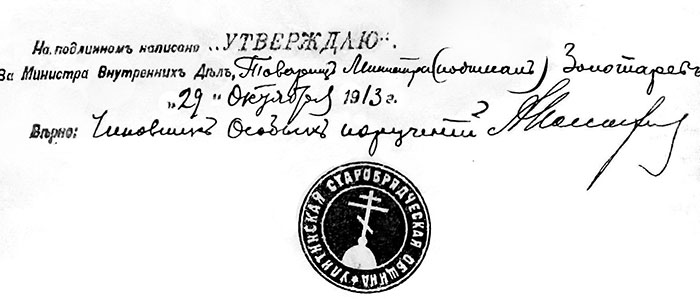 На подлинномъ написано „УТВЕРЖДАЮ“.
За Министра Внутреннихъ Дѣлъ, Товарищъ Министра (подписалъ) Золотаревъ
„29“ Октября 1913 г.
Вѣрно: Чиновникъ Особыхъ порученій
УЛИТИНСКАЯ СТАРОБРЯДЧЕСКАЯ ОБЩИНА